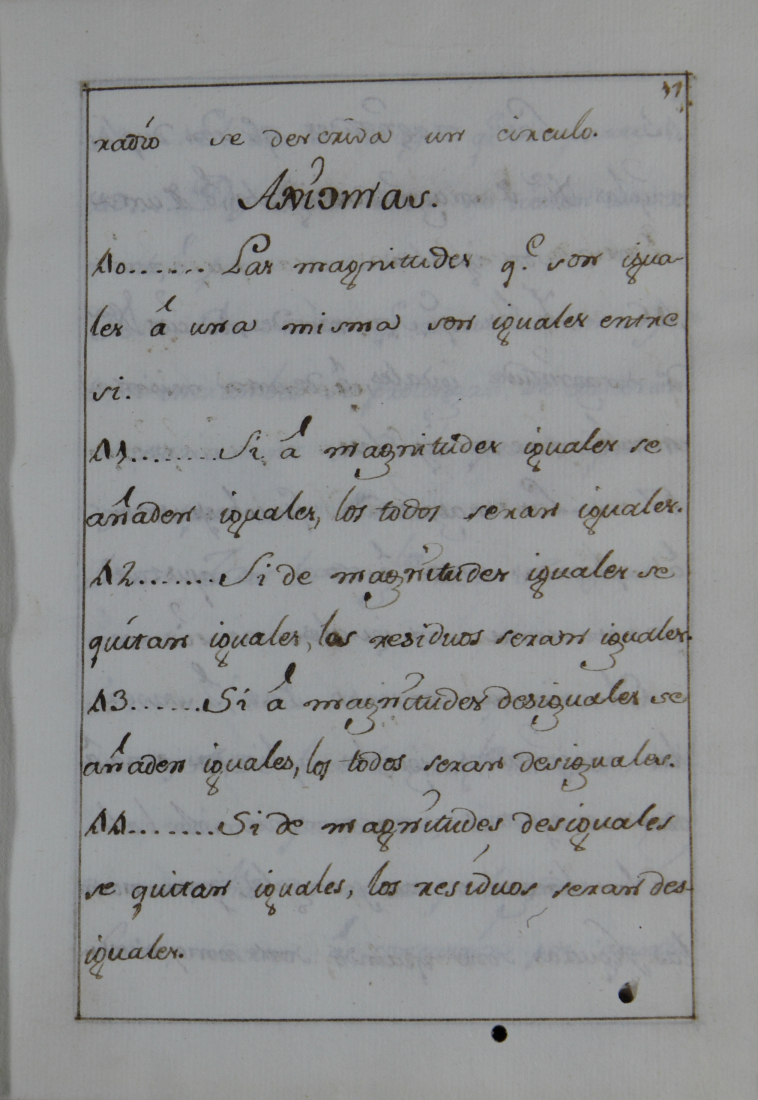 radio se descriva un circulo.
Axiomas.
40...... Las magnitudes q.e son igua-
les á una misma son iguales entre
si.
41........Si á magnitudes iguales se
añaden iguales, los todos seran iguales.
42.......Si de magnitudes iguales se
quitan iguales, los residuos seran iguales.
43......Si á magnitudes desiguales se
añaden iguales, los todos seran desiguales.
44.......Si de magnitudes desiguales
se quitan iguales, los residuos seran des-
iguales.